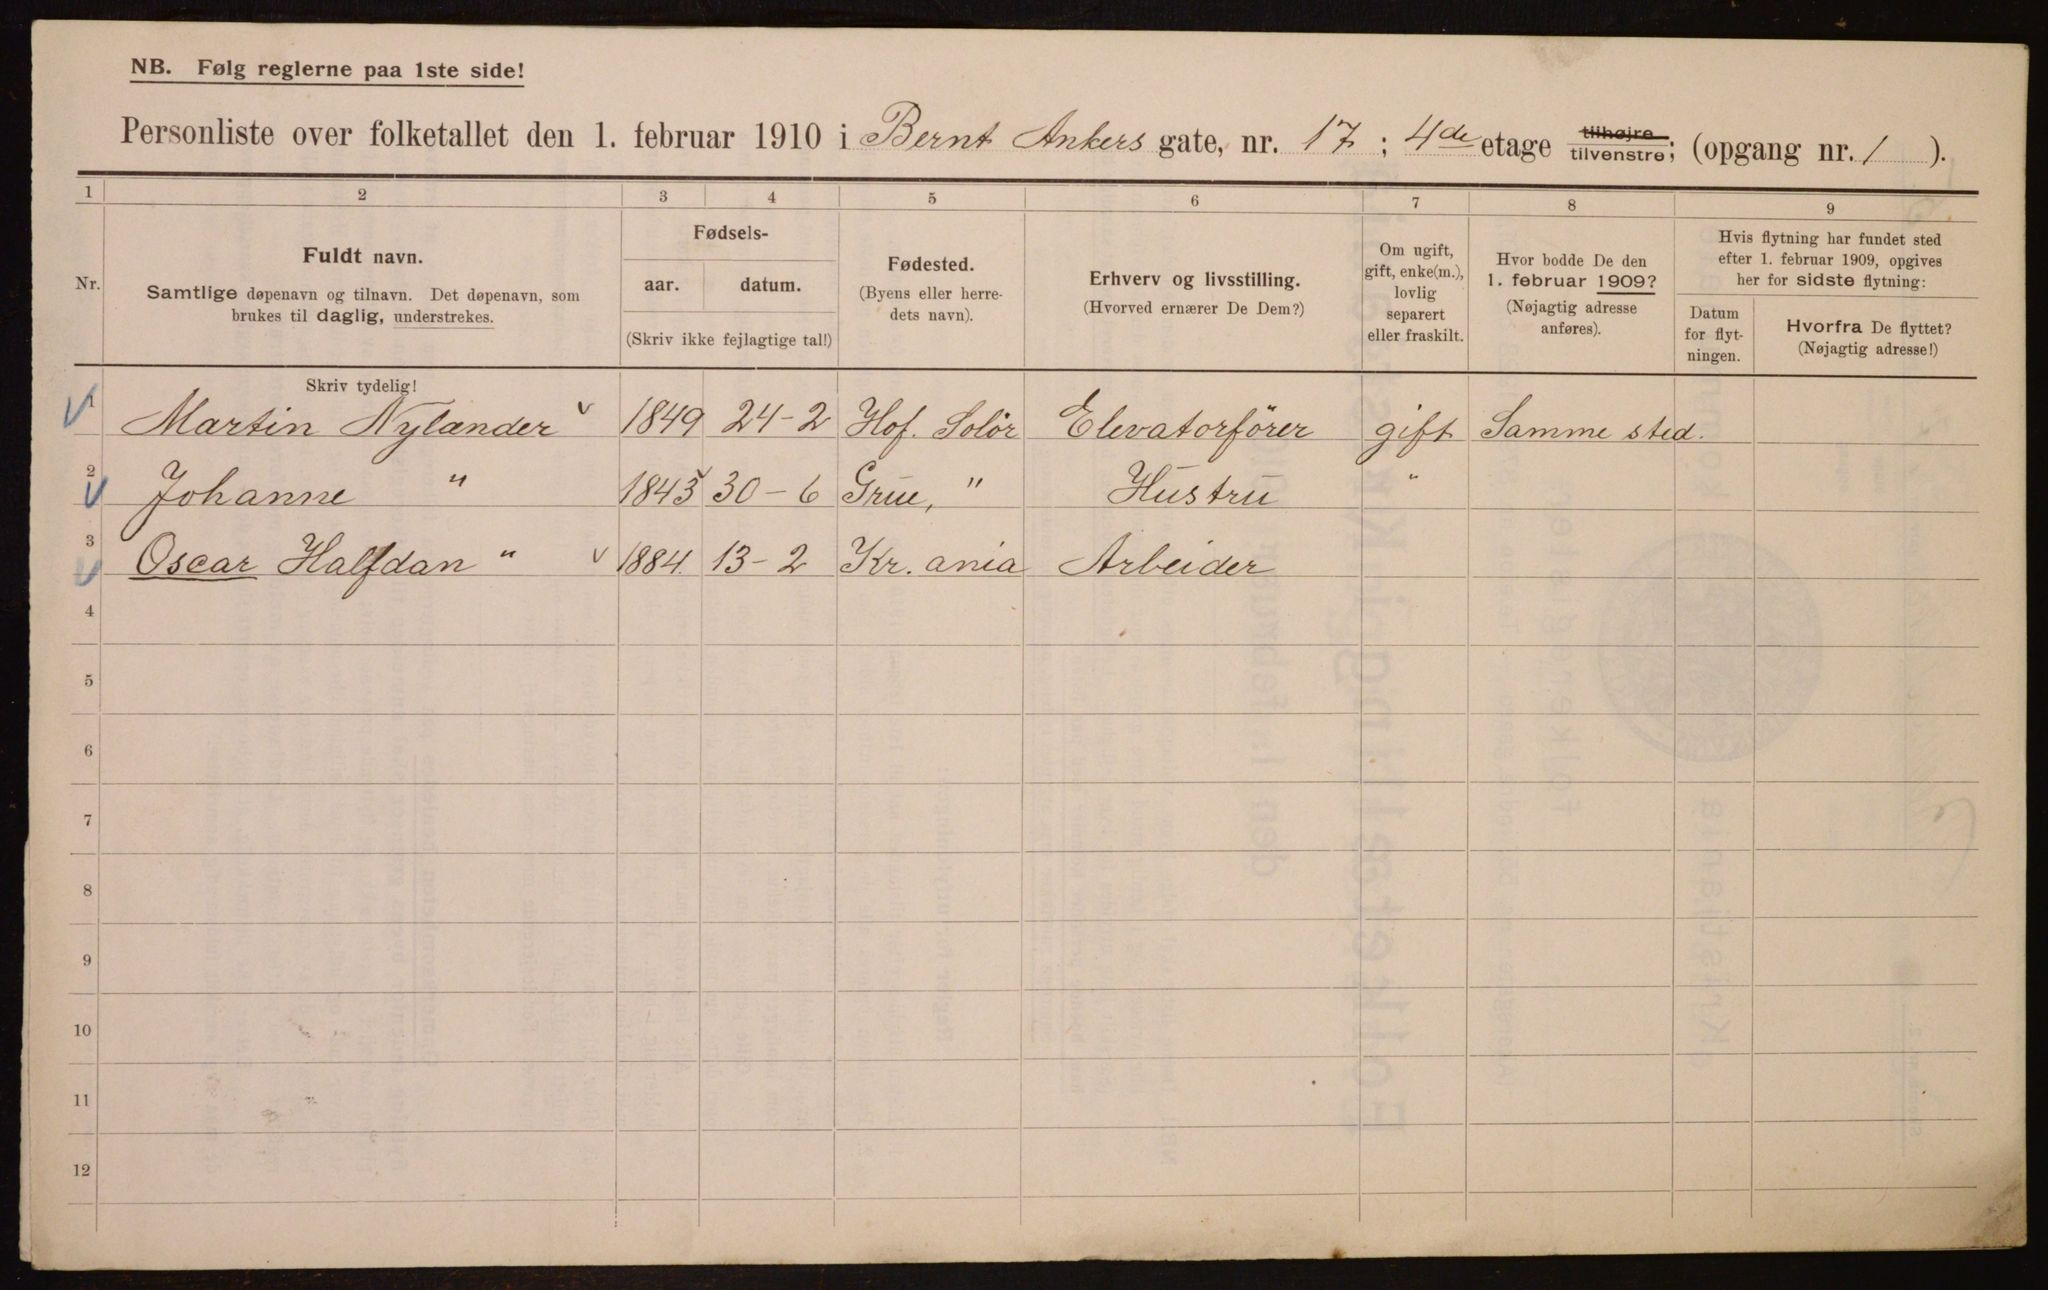 NB. Følg reglerne paa 1ste side!
Personliste over folketallet den 1. februar 1910 i Bernt Ankers gate, nr. 17 ; 4de etage tilhøjre tilvenstre; (opgang nr. 1 ).
1 2 3 4 5 6 7 8 9
Nr.
Fuldt navn.
Samtlige døpenavn og tilnavn. Det døpenavn, som
brukes til daglig, understrekes.
Fødsels-
aar. datum.
(Skriv ikke fejlagtige tal!)
Fødested.
(Byens eller herre-
dets navn).
Erhverv og livsstilling.
(Hvorved ernærer De Dem?)
Om ugift,
gift, enke(m.),
lovlig
separert
eller fraskilt.
Hvor bodde De den
1. februar 1909?
(Nøjagtig adresse
anføres).
Hvis flytning har fundet sted
efter 1. februar 1909, opgives
her for sidste flytning:
Datum
for flyt-
ningen.
Hvorfra De flyttet?
(Nøjagtig adresse!)
Skriv tydelig!
1 Martin Nylænder 1849 24-2 Hof. Solör Elevatorförer gift Samme sted.
2 Johanne " 1843 30-6 Grue, " Hustru "
3 Oscar Halfdan " 1884 13-2 Kr. ania Arbeider
4
5
6
7
8
9
10
11
12